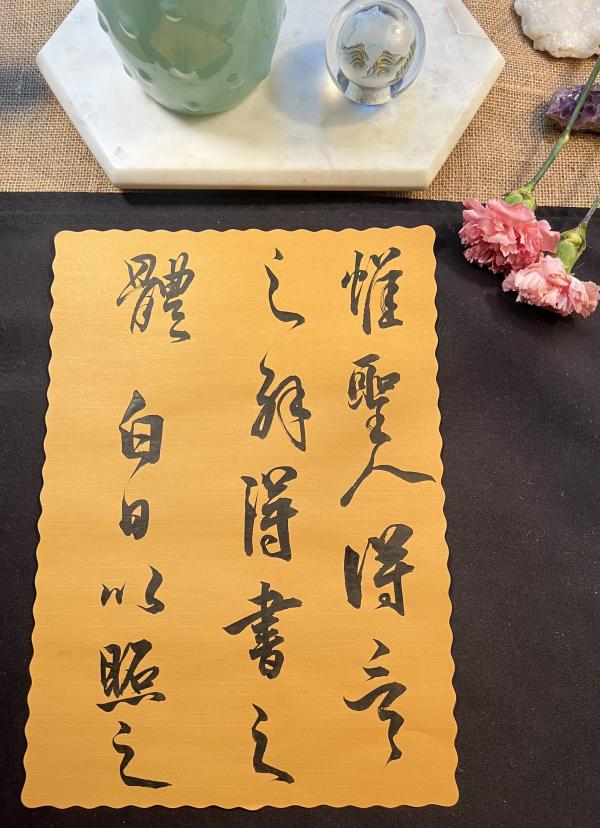 惟聖人得
之解得書之
體白日以照之